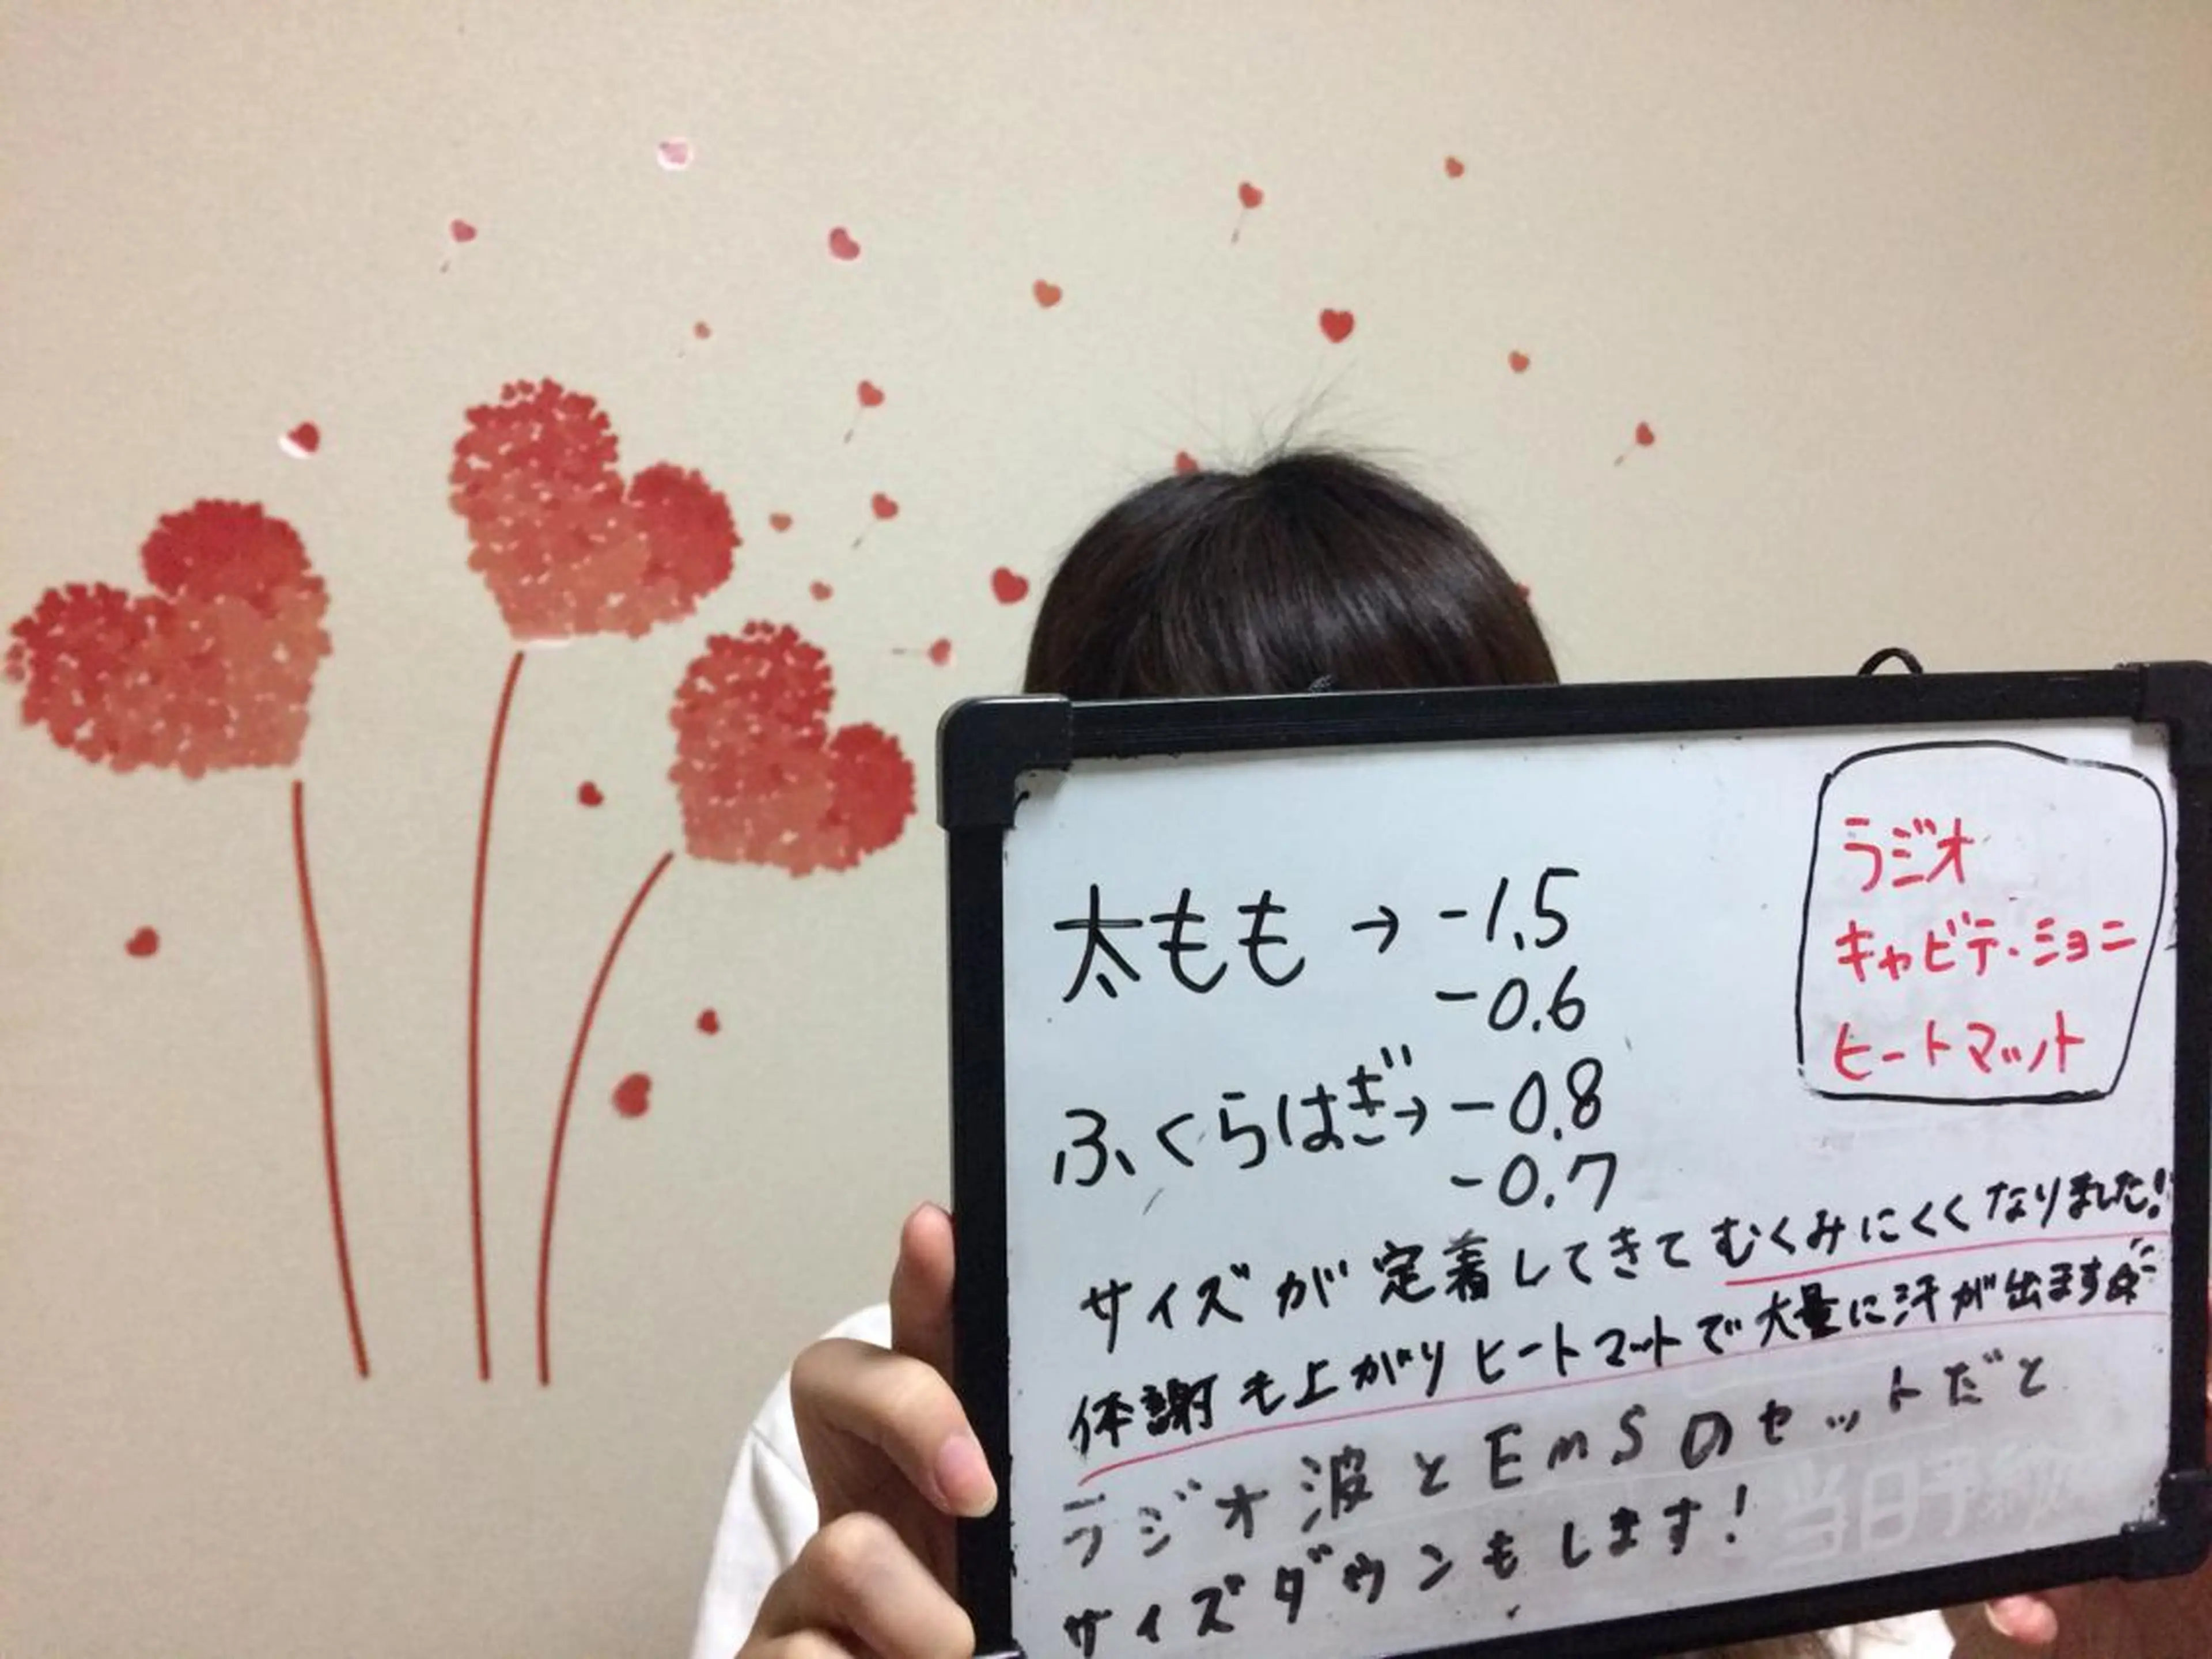 太もも → -1.5
-0.6
ふくらはぎ → -0.8
-0.7
ラジオ
キャビテーション
ヒートマット
サイズが定着してきてむくみにくくなりました!
体謝も上がりヒートマットで大量に汗が出ます☆
ラジオ波とEmSのセットだと
サイズダウンもします!
当日予約